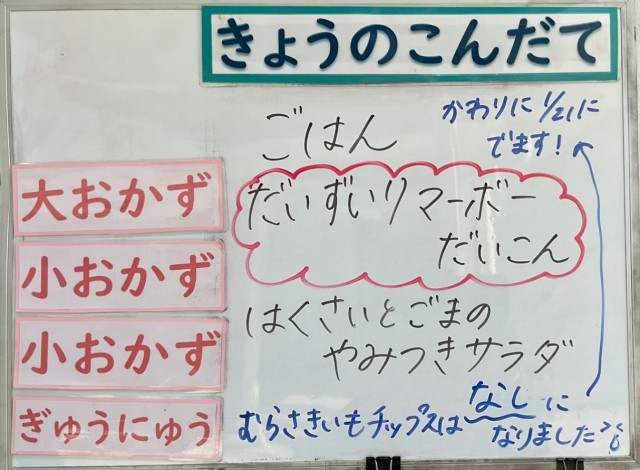 きょうのこんだて
ごはん
かわりに1/21に
でます!
大おかず
だいずいりマーボー
だいこん
小おかず
はくさいとごまの
やみつきサラダ
小おかず
むらさきいもチップスはなしに
なりました
ぎゅうにゅう